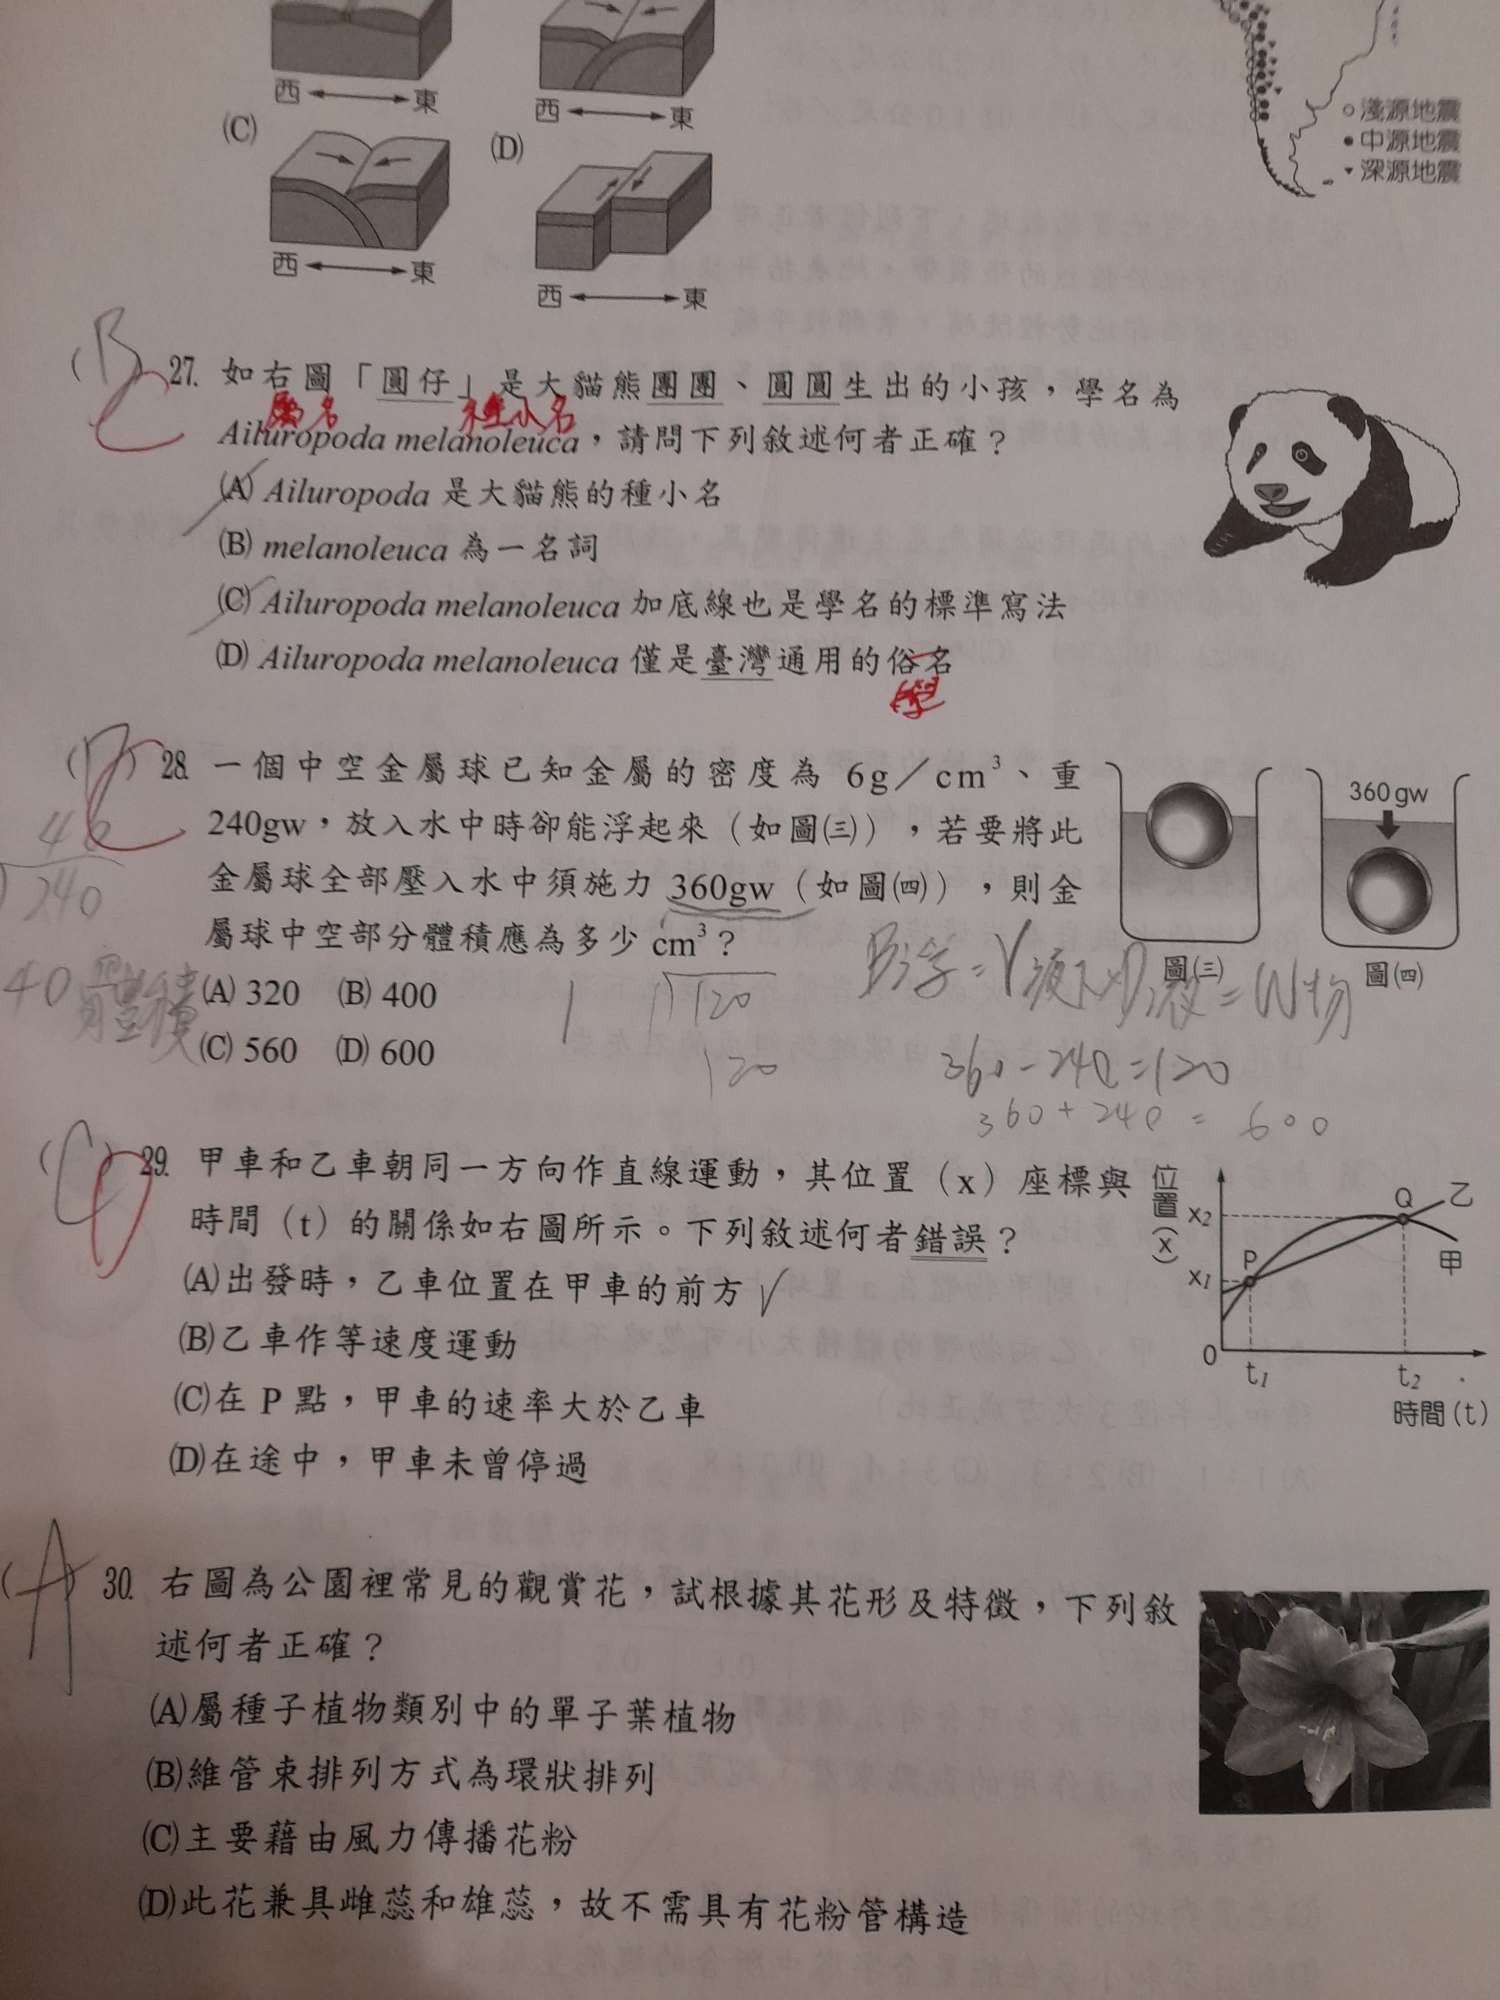 西 東
西 東
(C)
(D)
淺源地震
中源地震
深源地震
西 東
西 東
(B) 27. 如右圖「圓仔」是大貓熊團團、圓圓生出的小孩，學名為
屬名 種小名
Ailuropoda melanoleuca，請問下列敘述何者正確？
(A) Ailuropoda 是大貓熊的種小名
(B) melanoleuca 為一名詞
(C) Ailuropoda melanoleuca 加底線也是學名的標準寫法
(D) Ailuropoda melanoleuca 僅是臺灣通用的俗名
學
(D) 28. 一個中空金屬球已知金屬的密度為 6g／cm³、重
240gw，放入水中時卻能浮起來（如圖㈢），若要將此
金屬球全部壓入水中須施力 360gw（如圖㈣），則金
屬球中空部分體積應為多少 cm³？
360gw
圖㈢
圖㈣
40
240
40 體積
(A) 320 (B) 400
(C) 560 (D) 600
1 1 120
120
360-240=120
360+240 = 600
(C) 29. 甲車和乙車朝同一方向作直線運動，其位置（x）座標與
時間（t）的關係如右圖所示。下列敘述何者錯誤？
(A)出發時，乙車位置在甲車的前方 ✓
(B)乙車作等速度運動
(C)在 P 點，甲車的速率大於乙車
(D)在途中，甲車未曾停過
位置(x)
x₂
x₁
0
P
Q
乙
甲
t₁
t₂
時間(t)
(A) 30. 右圖為公園裡常見的觀賞花，試根據其花形及特徵，下列敘
述何者正確？
(A)屬種子植物類別中的單子葉植物
(B)維管束排列方式為環狀排列
(C)主要藉由風力傳播花粉
(D)此花兼具雌蕊和雄蕊，故不需具有花粉管構造